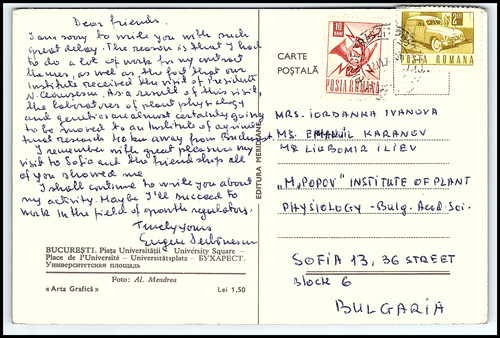 Dear friends,
I am sorry to write you with such
great delay. The reason is that I had
to do a lot of work for my contract
themes, as well as the fact that our
Institute received the visit of President
N. Ceausescu. As a result of this visit,
the laboratories of plant physiology
and genetics are almost certainly going
to be moved to an Institute of agronomical
research 40 km away from Bucharest.
I remember with great pleasure my
visit to Sofia and the friendship all
of you showed me.
I shall continue to write you about
my activity. Maybe I'll succeed to
work in the field of growth regulators.
Truely yours
Eugen
BUCUREȘTI. Piața Universității - University Square -
Place de l'Université - Universitätsplatz - БУХАРЕСТ.
Университетская площадь
Foto: Al. Mendrea
«Arta Grafică» Lei 1,50
EDITURA MERIDIANE
CARTE
POȘTALĂ
10
POSTA ROMANA
POSTA ROMANA
MRS. IORDANKA IVANOVA
MS. EMANUIL KARANOV
MR LIUBOMIR ILIEV
„M. POPOV" INSTITUTE OF PLANT
PHYSIOLOGY - Bulg. Acad. Sci.
SOFIA 13, 36 STREET
Block 6
BULGARIA